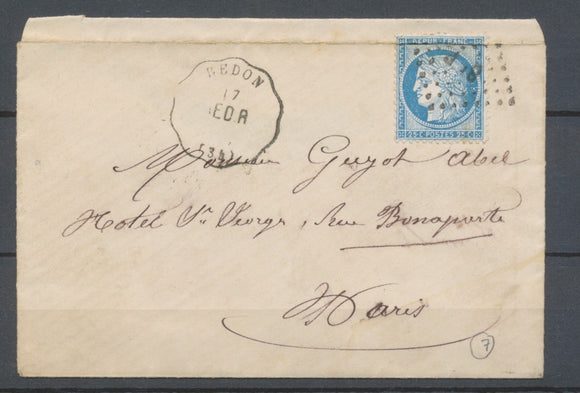 REDON
17
REPUB · FRANC ·
25 C · POSTES · 25 C ·
Monsieur Guyot Abel
Hotel St George, Rue Bonaparte
Paris
7